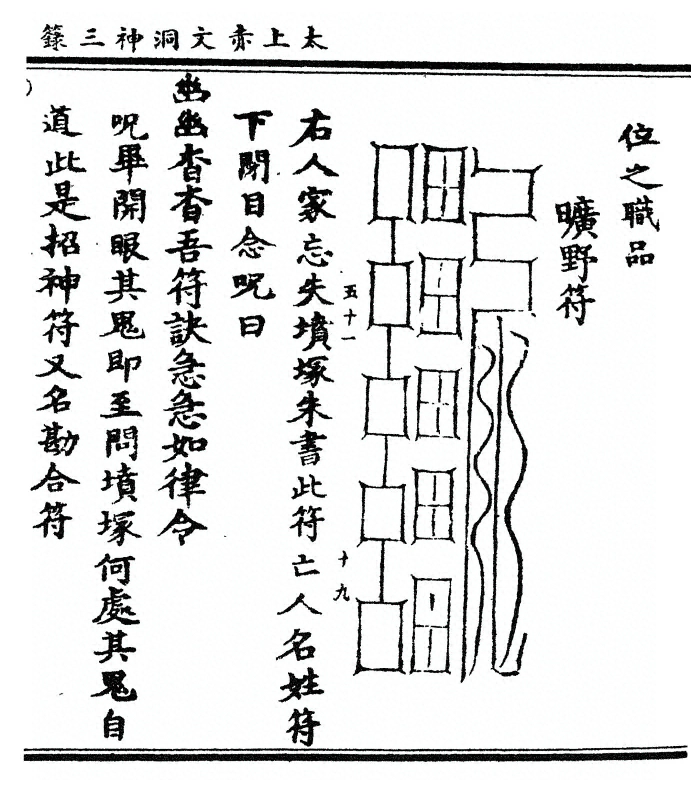 太上赤文洞神三籙
位之職品
曠野符
五十一
十九
右人家忘失墳塚朱書此符亡人名姓符
下閉目念呪曰
幽幽杳杳吾符訣急急如律令
呪畢開眼其鬼即至問墳塚何處其鬼自
道此是招神符又名勘合符